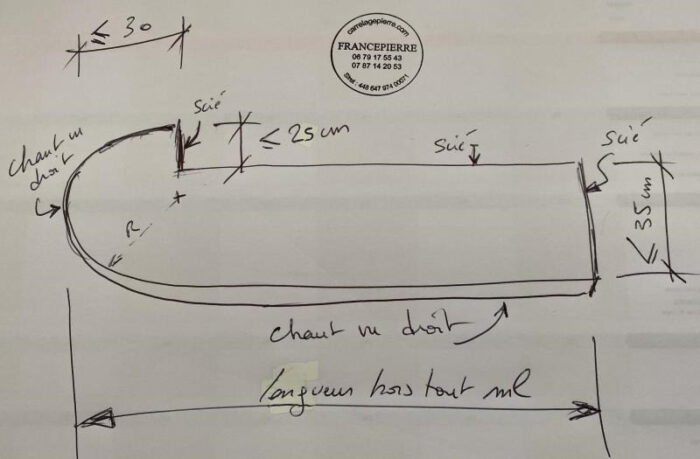 ≤ 30
carrelagepierre.com
FRANCEPIERRE
06 79 17 55 43
07 87 14 20 53
Siret : 448 647 974 00071
Scié
≤ 25 cm
Scié
Scié
chant vu
droit
R
≤ 35 cm
chant vu droit
longueur hors tout ml